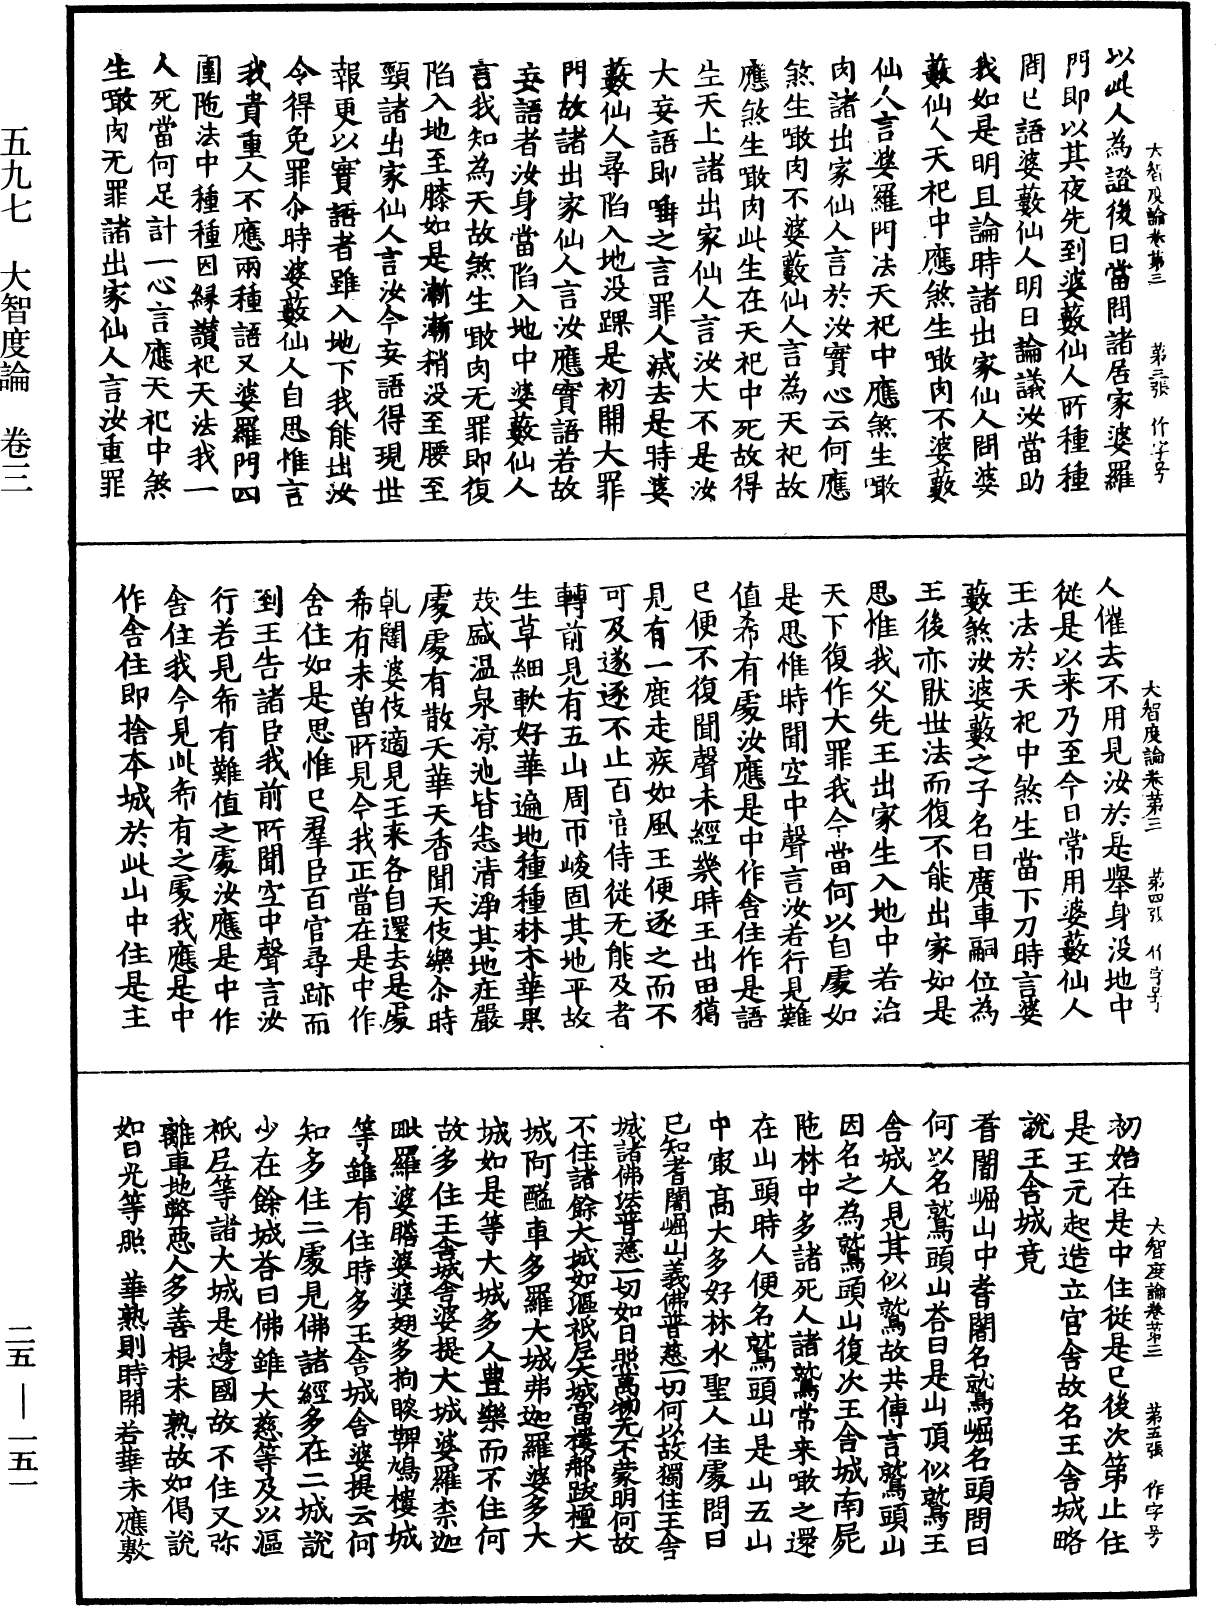 大智度論卷第三　第三張　作字号
以此人為證後日當問諸居家婆羅
門即以其夜先到婆藪仙人所種種
問已語婆藪仙人明日論議汝當助
我如是明旦論時諸出家仙人問婆
藪仙人天祀中應煞生噉肉不婆藪
仙人言婆羅門法天祀中應煞生噉
肉諸出家仙人言於汝實心云何應
煞生噉肉不婆藪仙人言為天祀故
應煞生噉肉此生在天祀中死故得
生天上諸出家仙人言汝大不是汝
大妄語即唾之言罪人滅去是時婆
藪仙人尋陷入地没踝是初開大罪
門故諸出家仙人言汝應實語若故
妄語者汝身當陷入地中婆藪仙人
言我知為天故煞生噉肉无罪即復
陷入地至膝如是漸漸稍没至腰至
頸諸出家仙人言汝今妄語得現世
報更以實語者雖入地下我能出汝
令得免罪尒時婆藪仙人自思惟言
我貴重人不應兩種語又婆羅門四
圍陁法中種種因緣讚祀天法我一
人死當何足計一心言應天祀中煞
生噉肉无罪諸出家仙人言汝重罪
大智度論卷第三　第四張　作字号
人催去不用見汝於是舉身没地中
從是以来乃至今日常用婆藪仙人
王法於天祀中煞生當下刀時言婆
藪煞汝婆藪之子名曰廣車嗣位為
王後亦猒世法而復不能出家如是
思惟我父先王出家生入地中若治
天下復作大罪我今當何以自處如
是思惟時聞空中聲言汝若行見難
值希有處汝應是中作舍住作是語
已便不復聞聲未經幾時王出田獦
見有一鹿走疾如風王便逐之而不
可及遂逐不止百官侍從无能及者
轉前見有五山周帀峻固其地平故
生草細軟好華遍地種種林木華果
茂盛温泉凉池皆悉清淨其地莊嚴
處處有散天華天香聞天伎樂尒時
乹闥婆伎適見王来各自還去是處
希有未曽所見今我正當在是中作
舍住如是思惟已羣臣百官尋跡而
到王告諸臣我前所聞空中聲言汝
行若見希有難值之處汝應是中作
舍住我今見此希有之處我應是中
作舍住即捨本城於此山中住是主
大智度論卷第三　第五張　作字号
初始在是中住從是已後次第止住
是王元起造立宫舍故名王舍城略
說王舍城竟
耆闍崛山中耆闍名鷲崛名頭問曰
何以名鷲頭山荅曰是山頂似鷲王
舍城人見其似鷲故共傳言鷲頭山
因名之為鷲頭山復次王舍城南屍
陁林中多諸死人諸鷲常来噉之還
在山頭時人便名鷲頭山是山五山
中㝡高大多好林水聖人住處問曰
已知耆闍崛山義佛普慈一切何以故獨住王舍
城諸佛法普慈一切如日照萬物无不蒙明何故
不住諸餘大城如漚祇尼大城富樓那跋檀大
城阿醯車多羅大城弗迦羅婆多大
城如是等大城多人豊樂而不住何
故多住王舍城舍婆提大城婆羅柰迦
毗羅婆瞻婆婆翅多拘睒鞞鳩樓城
等雖有住時多王舍城舍婆提云何
知多住二處見佛諸經多在二城說
少在餘城荅曰佛雖大慈等及以漚
祇尼等諸大城是邊國故不住又弥
離車地弊惡人多善根未熟故如偈說
如日光等照　華熟則時開若華未應敷
五九七　大智度論　卷三
二五—一五一